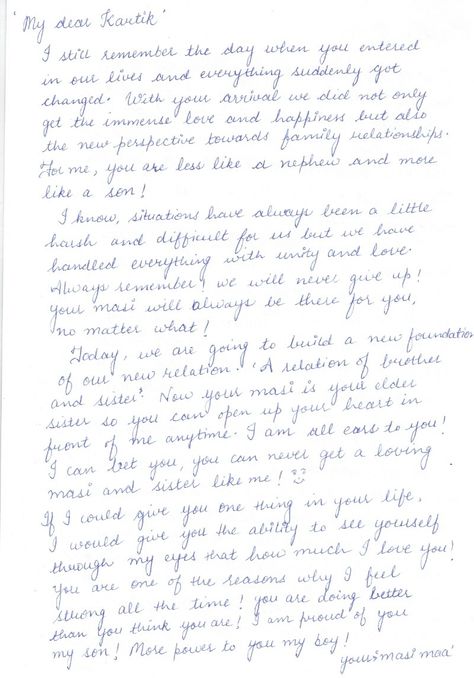 'My dear Kartik'
I still remember the day when you entered
in our lives and everything suddenly got
changed. With your arrival we did not only
get the immense love and happiness but also
the new perspective towards family relationships.
For me, you are less like a nephew and more
like a son!
I know, situations have always been a little
harsh and difficult for us but we have
handled everything with unity and love.
Always remember! we will never give up!
your masi will always be there for you,
no matter what!
Today, we are going to build a new foundation
of our new relation. 'A relation of brother
and sister'. Now your masi is your elder
sister so you can open up your heart in
front of me anytime. I am all ears to you!
I can bet you, you can never get a loving
masi and sister like me!
If I could give you one thing in your life,
I would give you the ability to see yourself
through my eyes that how much I love you!
you are one of the reasons why I feel
strong all the time! you are doing better
than you think you are! I am proud of you
my son! More power to you my boy!
your's masi maa'